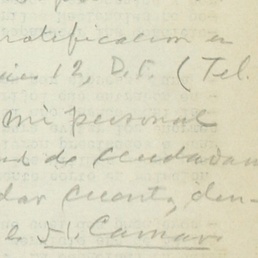 ratificacion en
12, D.F. (Tel.
mi personal
d de ciudadan
dar cuenta, den-
H. Camar